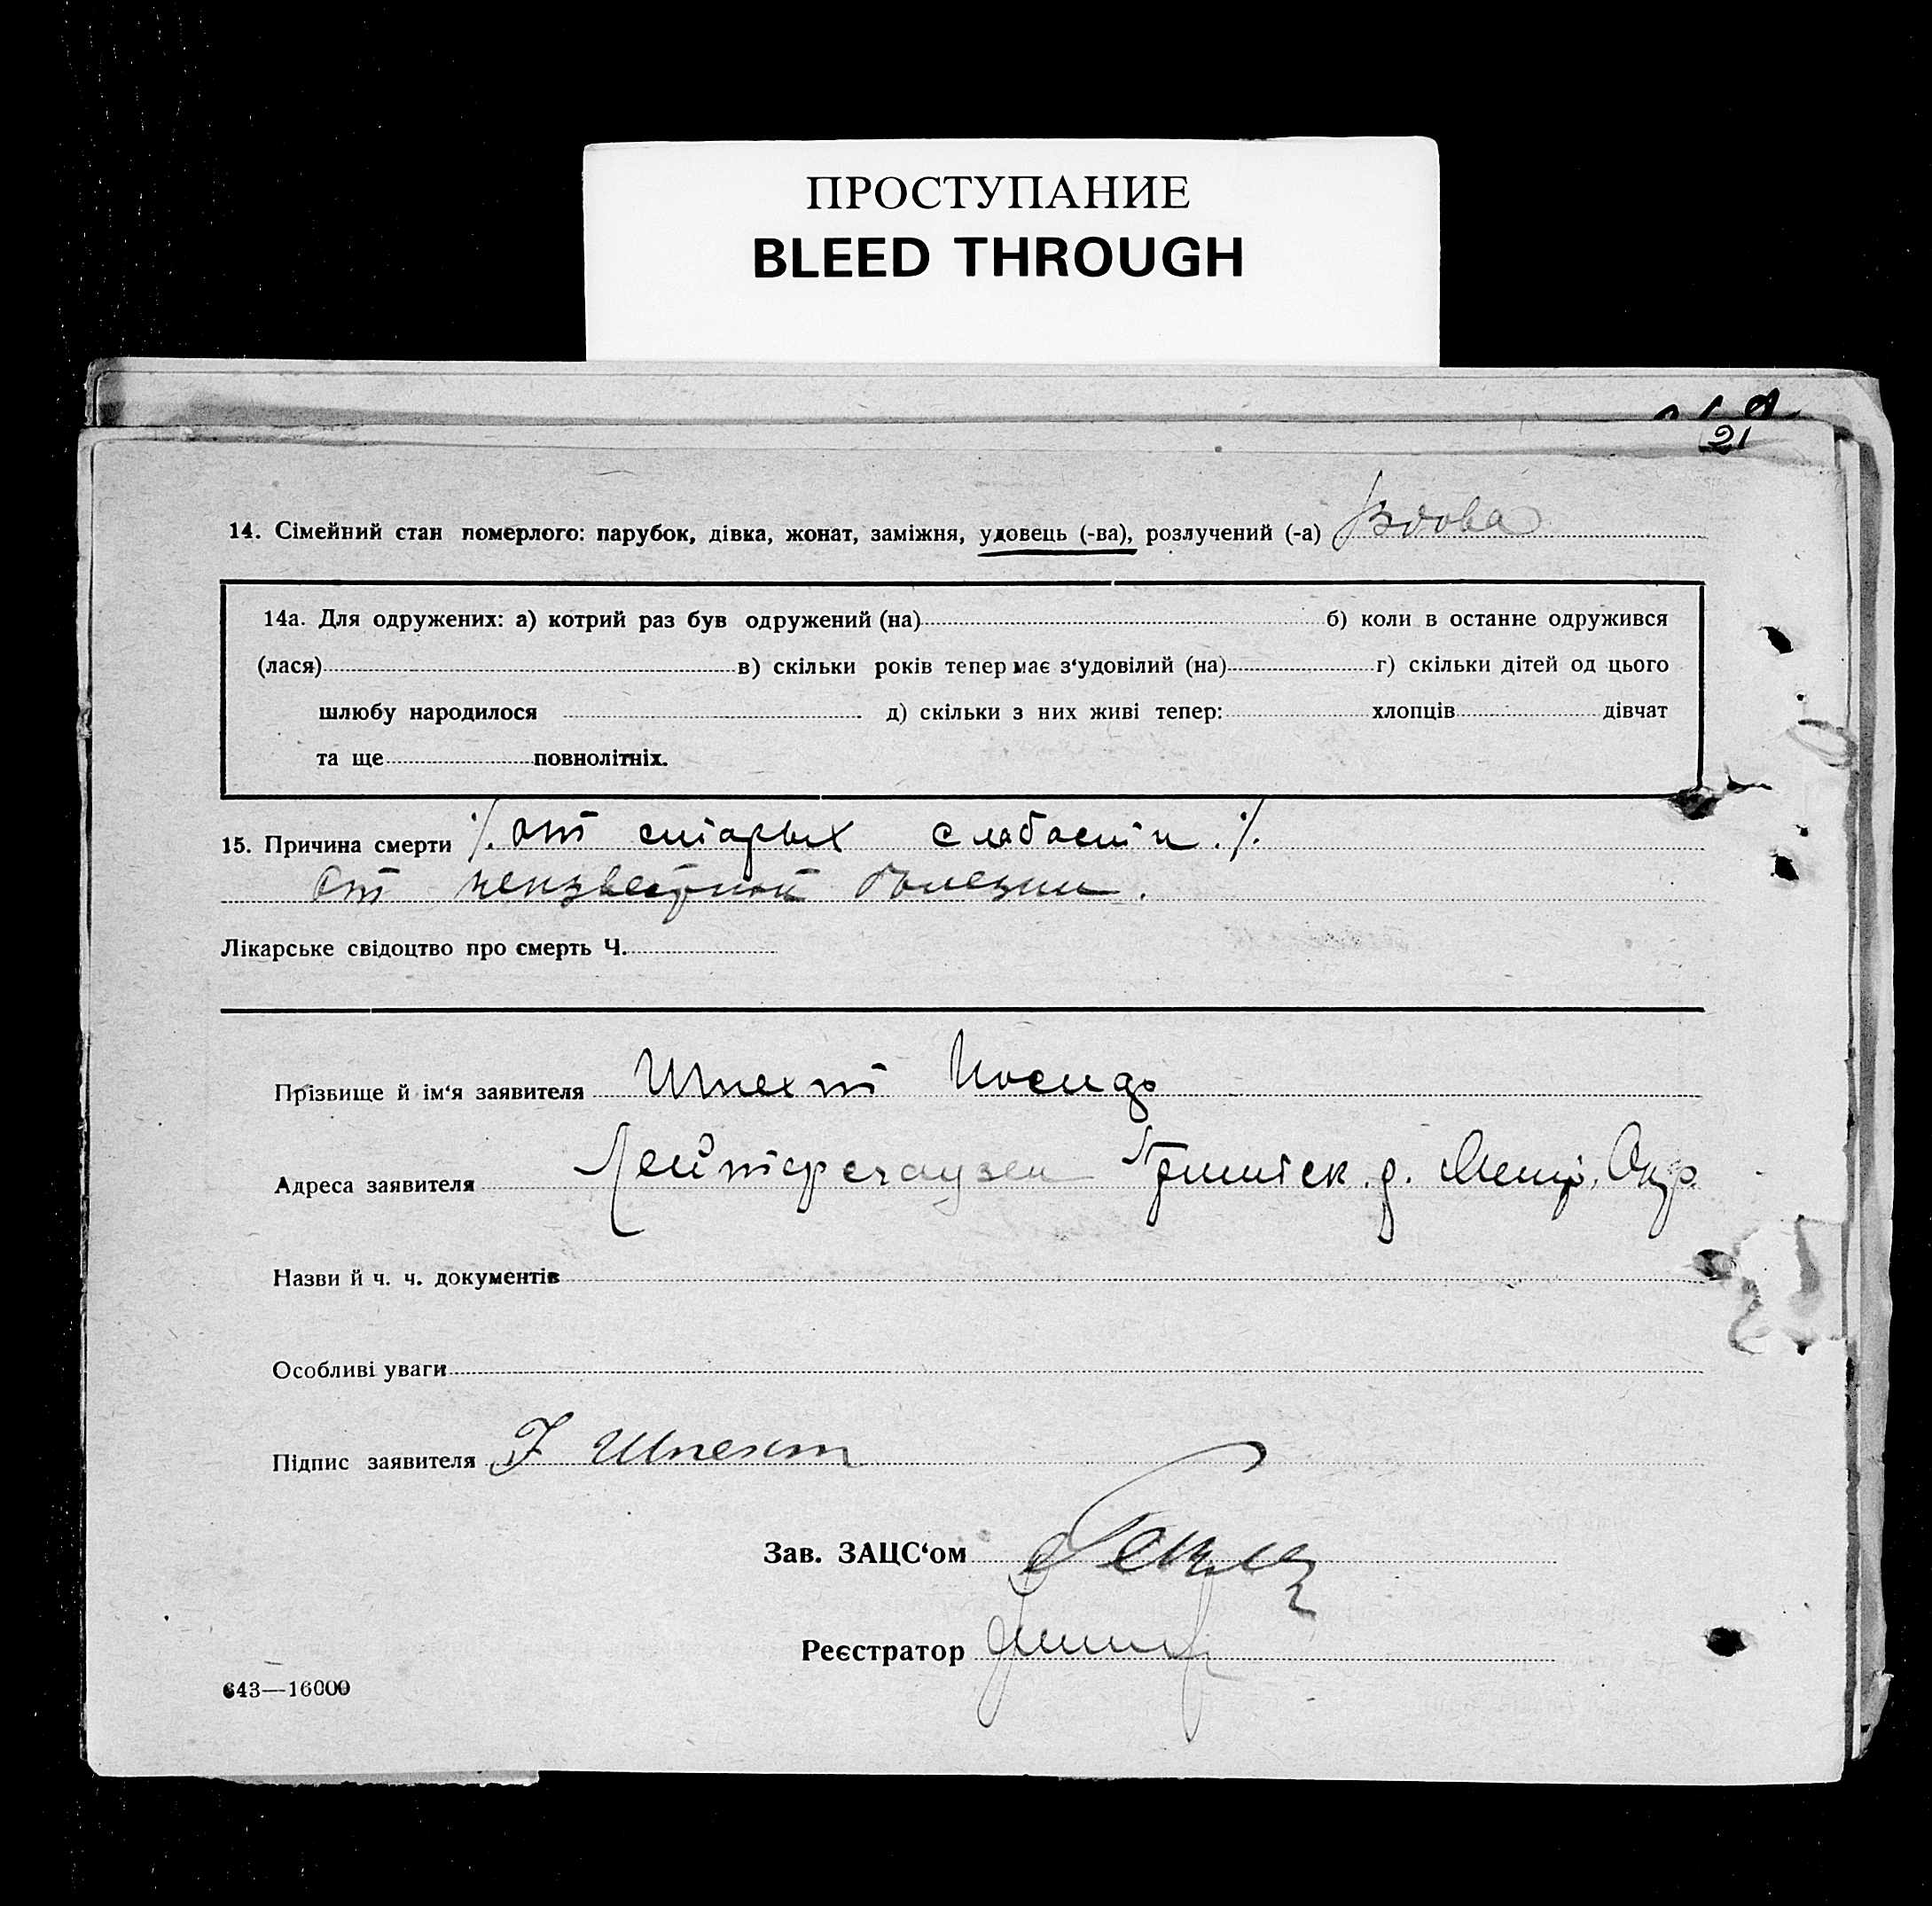 ПРОСТУПАНИЕ
BLEED THROUGH
21
14. Сімейний стан померлого: парубок, дівка, жонат, заміжня, удовець (-ва), розлучений (-а) Вдова
14а. Для одружених: а) котрий раз був одружений (на) б) коли в останне одружився
(лася) в) скільки років тепер має з'удовілий (на) г) скільки дітей од цього
шлюбу народилося д) скільки з них живі тепер: хлопців дівчат
та ще повнолітніх.
15. Причина смерти ·/. от старых слабости ./.
От неизвестной болезни.
Лікарське свідоцтво про смерть Ч.
Прізвище й ім'я заявителя Шпехт Иосиф
Адреса заявителя Лейтерсгаузен д. Окр.
Назви й ч. ч. документів
Особливі уваги
Підпис заявителя Шпехт
Зав. ЗАЦС'ом
Реєстратор
643—16000